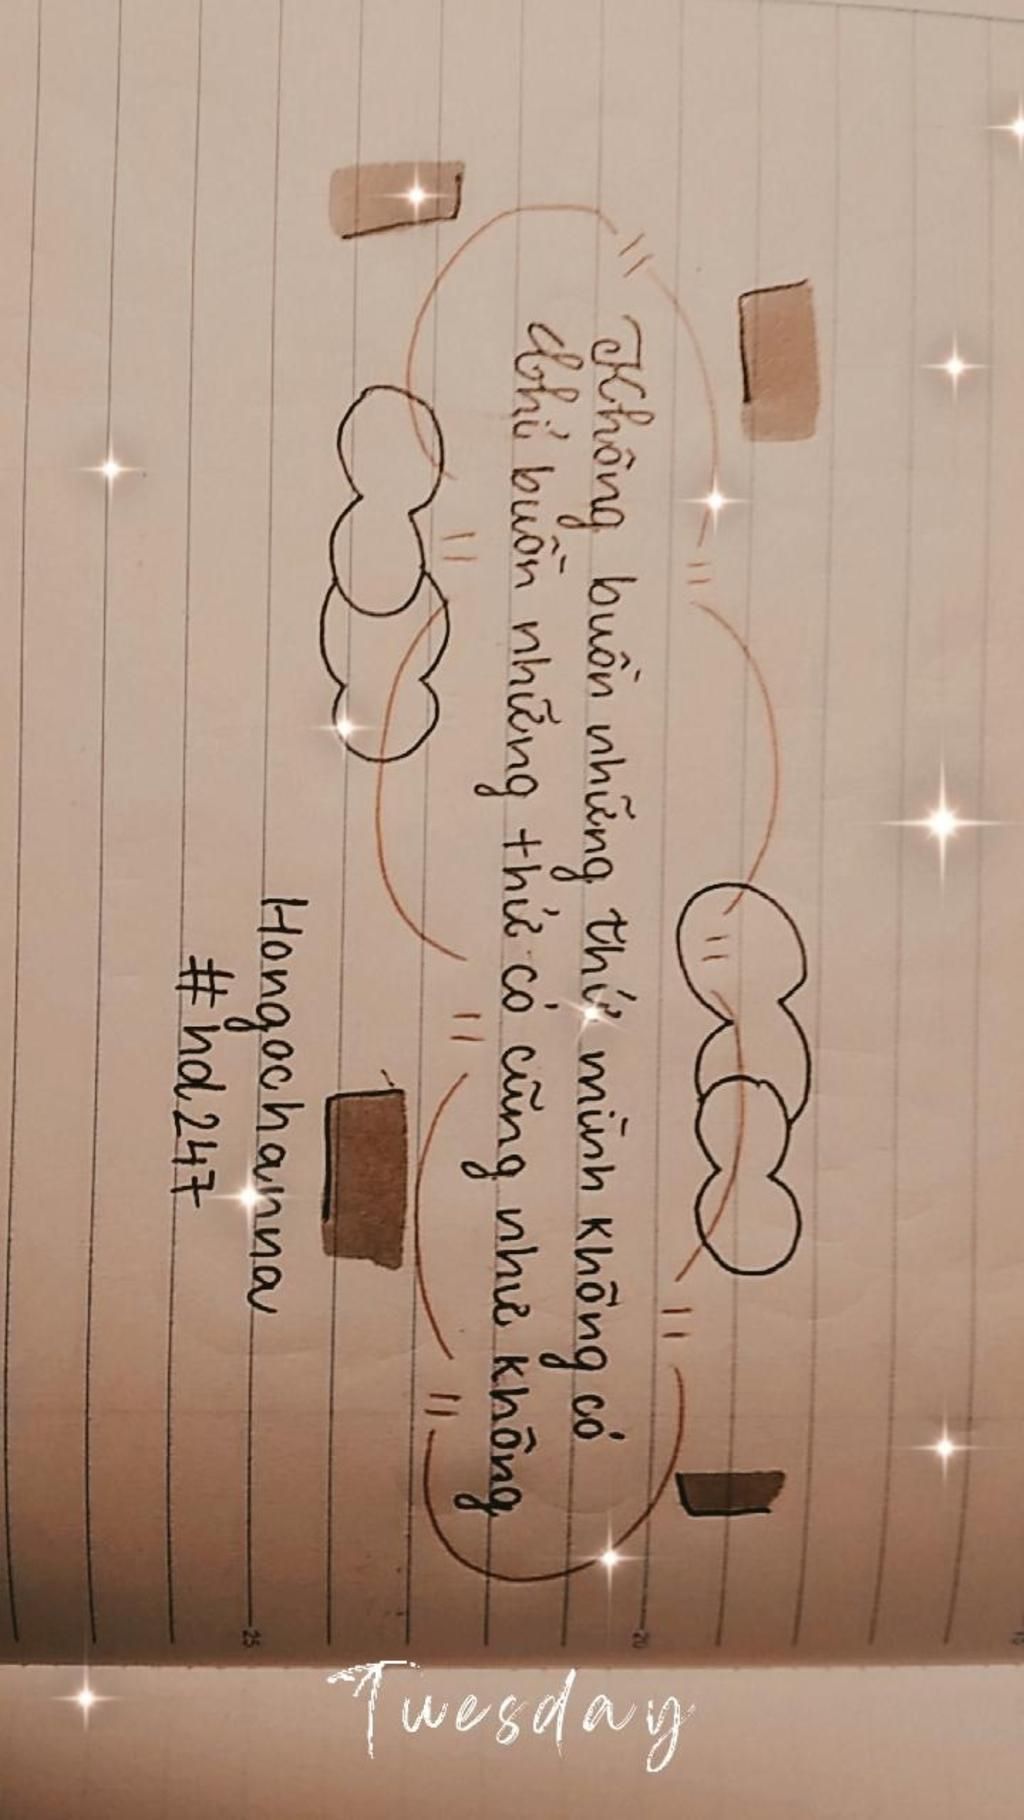 Không buồn những thứ mình không có
Chỉ buồn những thứ có cũng như không
Hongochanna
#hd247
25
20
Tuesday